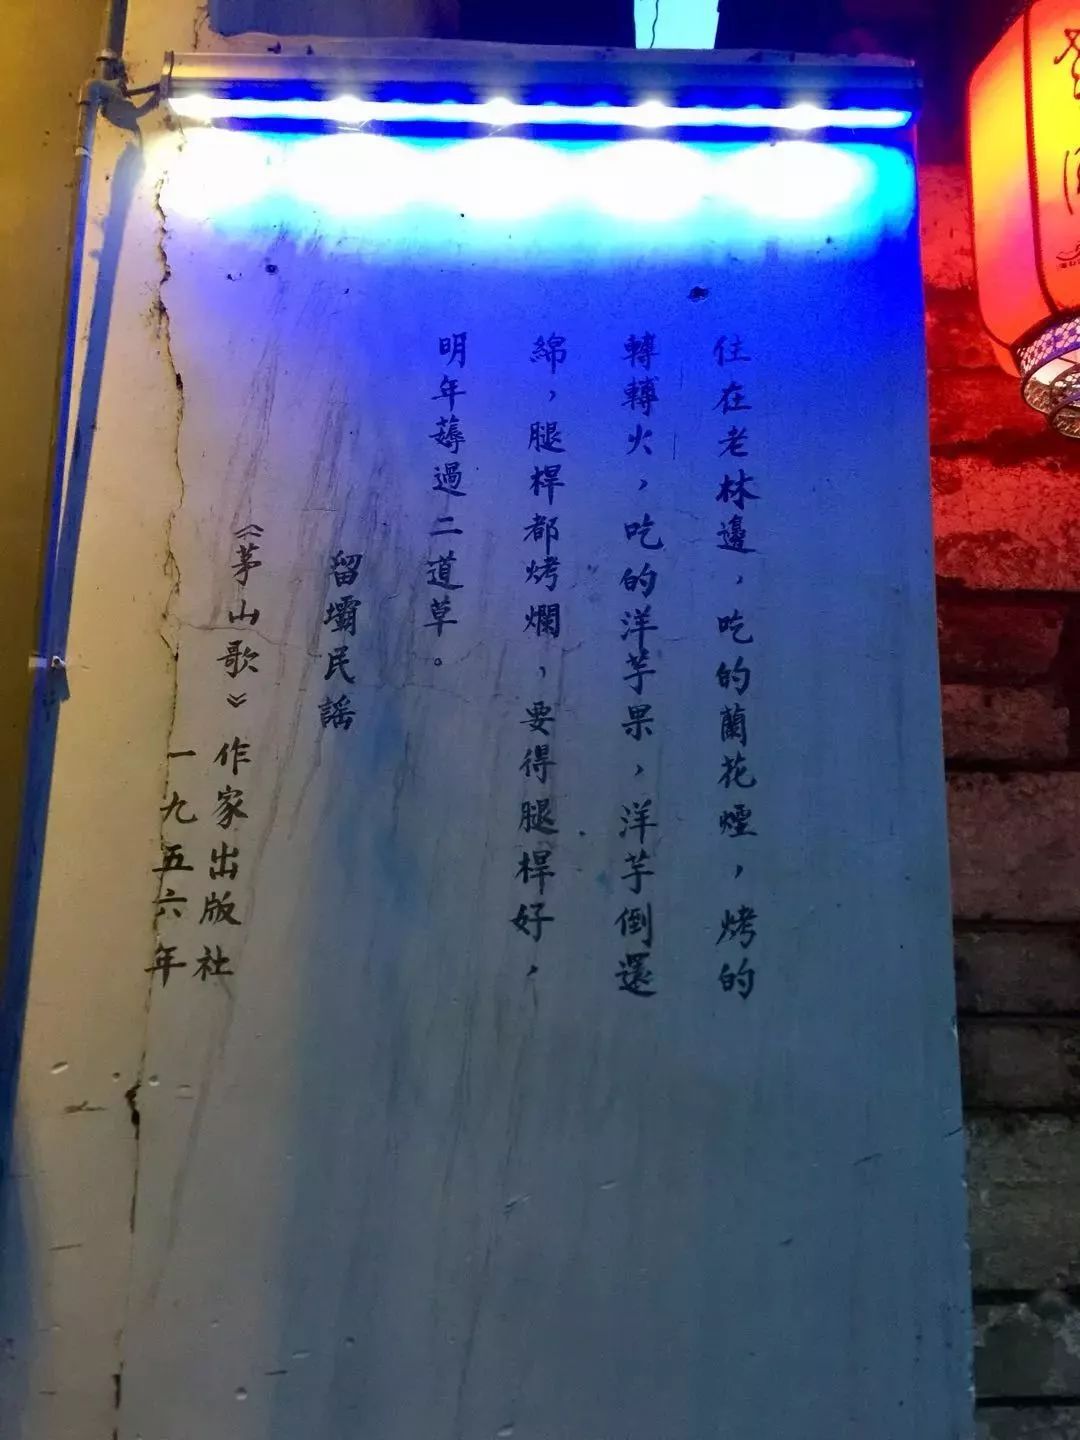 住在老林邊，吃的蘭花煙，烤的
轉轉火，吃的洋芋果，洋芋倒還
綿，腿桿都烤爛，要得腿桿好，
明年薅過二道草。
留壩民謠
《茅山歌》作家出版社
一九五六年